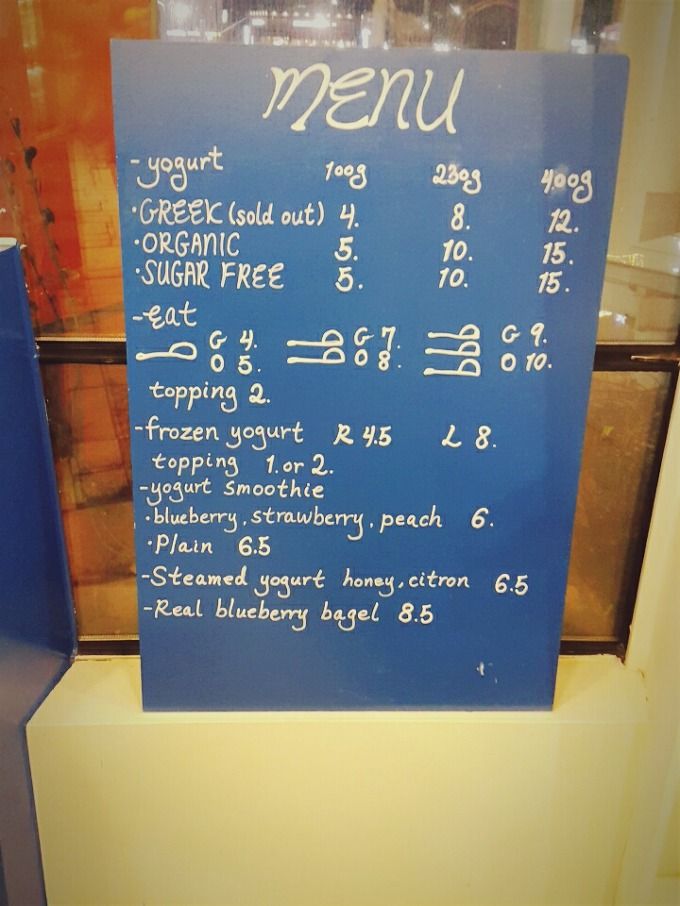 MENU
-yogurt 100g 230g 400g
·GREEK (sold out) 4. 8. 12.
·ORGANIC 5. 10. 15.
·SUGAR FREE 5. 10. 15.
-Eat
G 4. G 7. G 9.
O 5. O 8. O 10.
topping 2.
-frozen yogurt R 4.5 L 8.
topping 1. or 2.
-yogurt smoothie
·blueberry, strawberry, peach 6.
·Plain 6.5
-Steamed yogurt honey, citron 6.5
-Real blueberry bagel 8.5